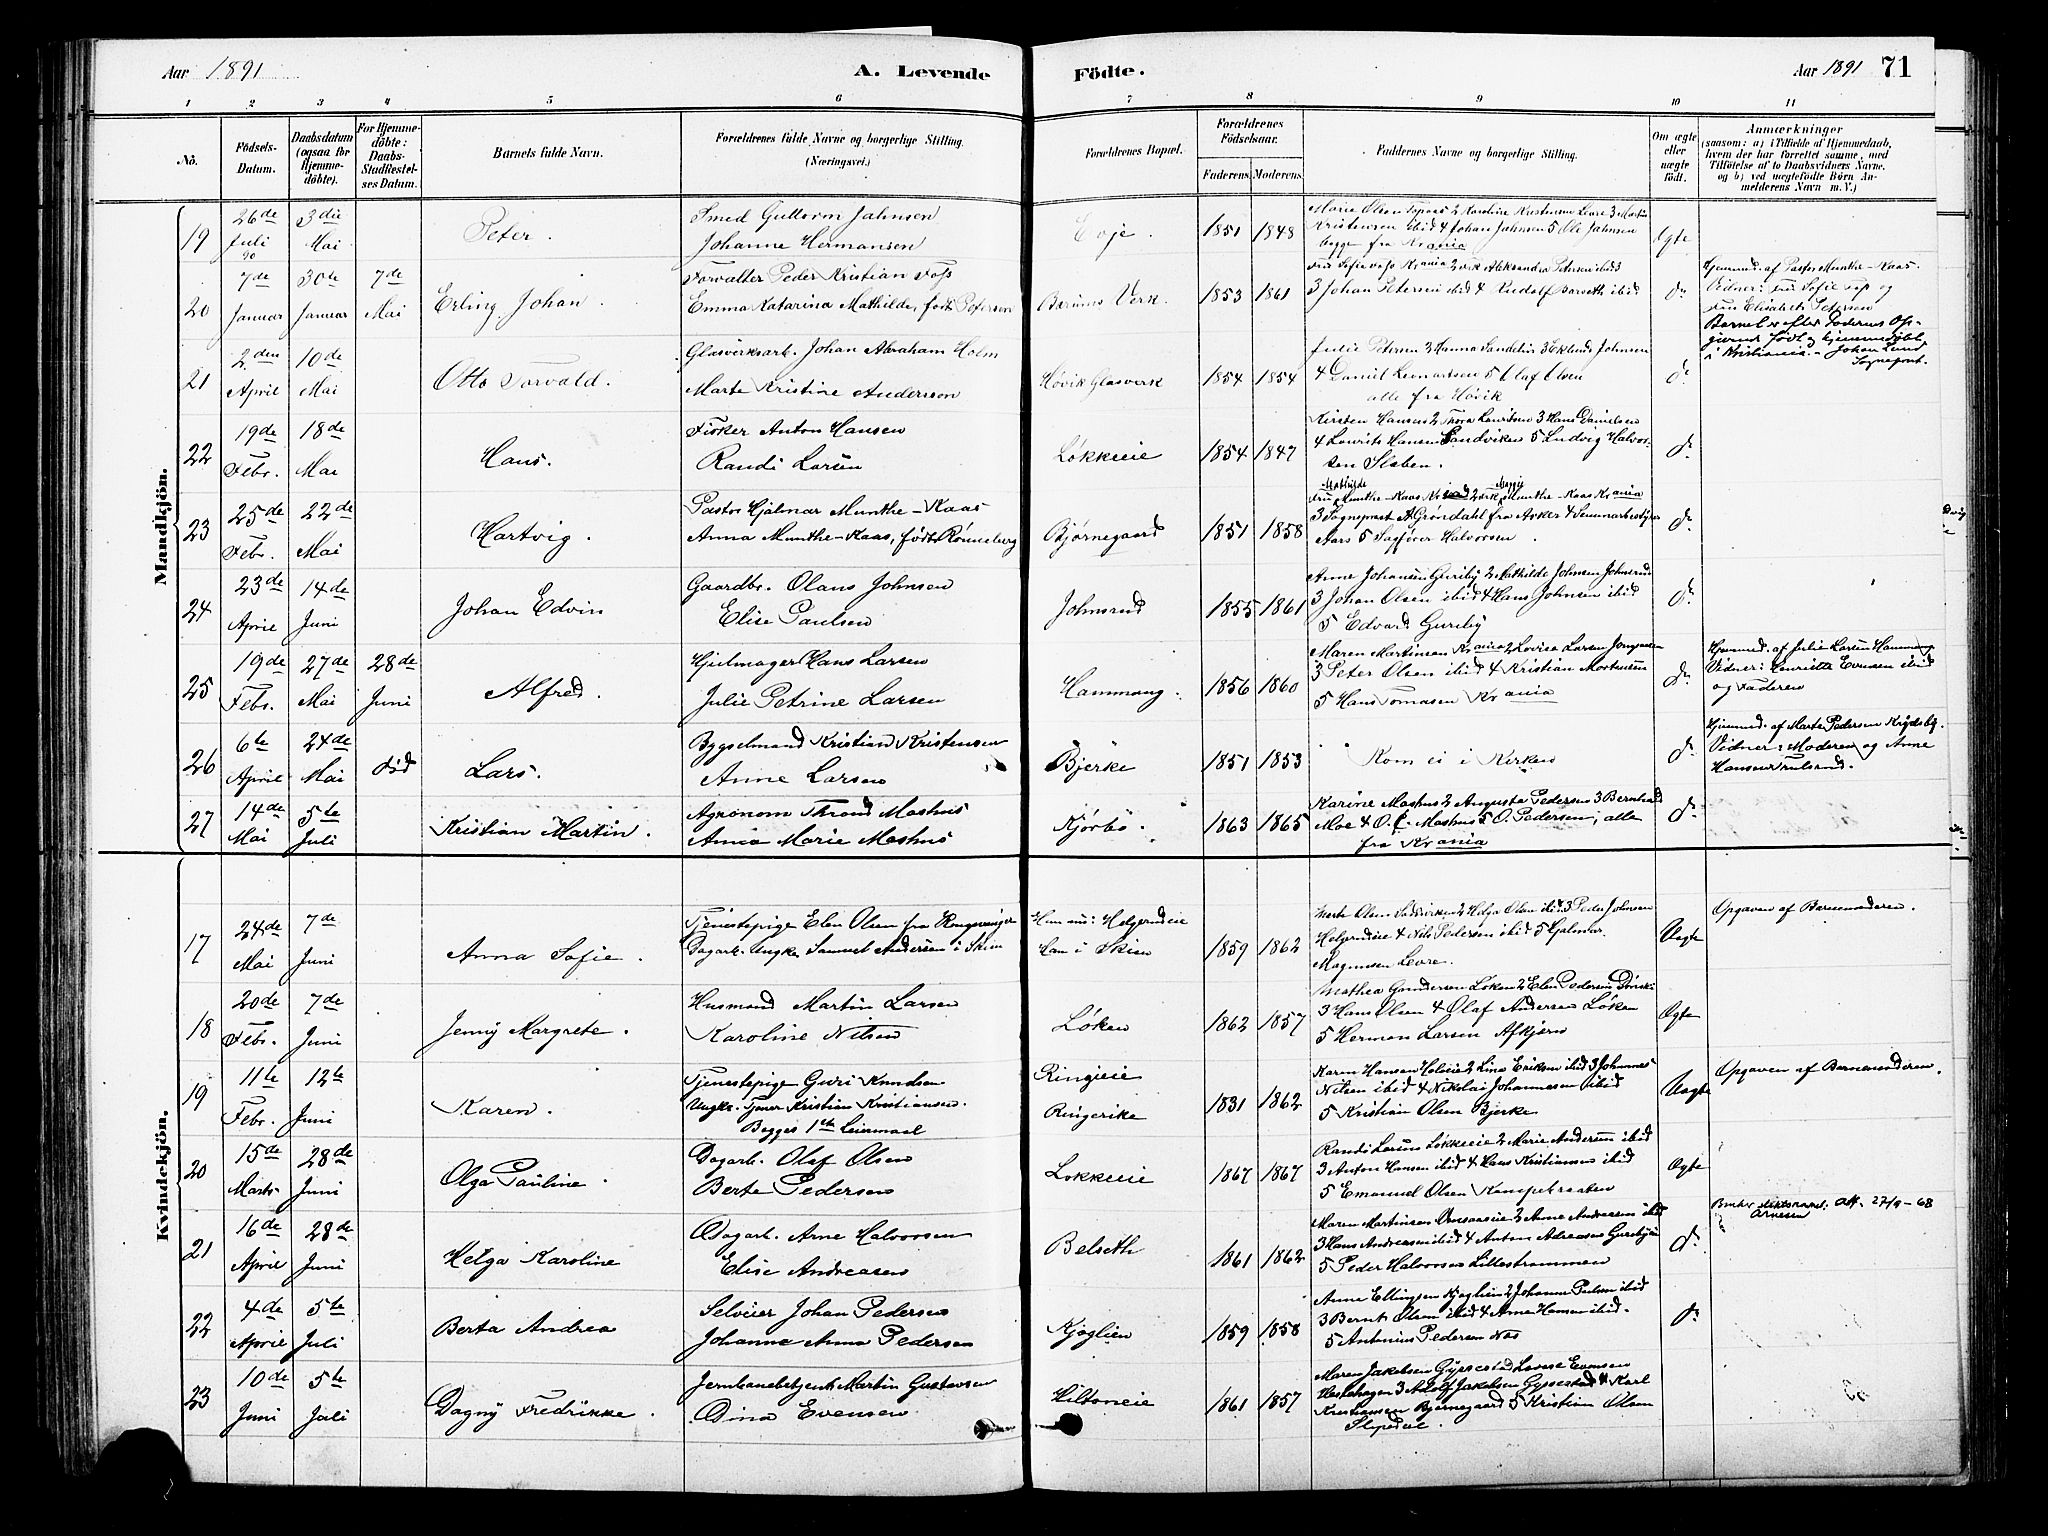 Aar 1891
A. Levende
Födte.
Aar 1891 71
1 2 3 4 5 6 7 8 9 10 11
No.
Födsels-
Datum.
Daabsdatum
(ogsaa for
Hjemme-
döbte).
For Hjemme-
döbte:
Daabs-
Stadfæstel-
ses Datum.
Barnets fulde Navn.
Forældrenes fulde Navne og borgerlige Stilling.
(Næringsvei.)
Forældrenes Bopæl.
Forældrenes
Födselsaar.
Faderens Moderens
Faddernes Navne og borgerlige Stilling.
Om ægte
eller
uægte
födt.
Anmærkninger
(saasom: a) i Tilfælde af Hjemmedaab,
hvem der har forrettet samme, med
Tilföielse af to Daabsvidners Navne,
og b) ved uægtefödte Börn An-
melderens Navn m. V.)
Mandkjön.
19
26de
Juli
90
3die
Mai
Peter.
Smed Guttorm Jahnsen
Johanne Hermansen
Evje.
1851 1848
Kristensen ibid 4 Johan Johnsen 5 Ole Jahnsen
begge fra Krania
Ægte
20
7de
Januar
30te
Januar
7de
Mai
Erling Johan.
Forvalter Peder Kristian Foss
Emma Katarina Mathilde, født Petersen
Bærums Verk.
1853 1861
3 Johan Petersen ibid 4 Rudolf Barseth ibid
do
Hjemmed. af Pastor Munthe-Kaas.
Vidner: Fru Sofie Foss og
Fru Elisabeth Petersen
Barnet er efter Faderens Op-
givende født og hjemmedøbt
i Kristiania. - Johan Lund
Sognepræst.
21
2den
April
10de
Mai
Otto Torvald.
Glasverksarb. Johan Abraham Holm
Marte Kristine Andersson
Høvik Glasverk
1854 1854
4 Daniel Lenartsen 5 Olaf Olsen
alle fra Høvik
do
22
19de
Febr.
18de
Mai
Hans.
Fisker Anton Hansen
Randi Larsen
Løkkeeie
1854 1847
Kirsten Hansen 2 Thora Lauritsen 3 Hans Danielsen
4 Laurits Hansen Sandviken 5 Ludvig Halvor-
sen Slæben.
do
23
25de
Febr.
22de
Mai
Hartvig.
Pastor Hjalmar Munthe-Kaas
Anna Munthe-Kaas, født Rønneberg
Bjørnegaard
1851 1858
Mathilde Maggie
Fru Munthe-Kaas Krania 2 Frk Munthe-Kaas Krania
3 Sognepræst A Grøndahl fra Asker 4 Seminarbestyrer
Aars 5 Sagfører Halvorsen
do
24
23de
April
14de
Juni
Johan Edvin
Gaardbr. Olaus Johnsen
Elise Paulsen
Johnsrud
1855 1861
Anne Johansen Guriby 2 Mathilde Johnsen Johnsrud
3 Johan Olsen ibid 4 Hans Johnsen ibid
5 Edvard Guriby
do
25
19de
Febr.
27de
Mai
28de
Juni
Alfred.
Hjulmager Hans Larsen
Julie Petrine Larsen
Hammang.
1856 1860
Maren Martinsen Krania 2 Lovise Larsen
3 Peter Olsen ibid 4 Kristian Mortensen
5 Hans Tomasen Krania
do
Hjemmed. af Julie Larsen Hammang
Vidner: Henriette Evensen ibid
og Faderen
26
6te
April
24de
Mai
død
Lars.
Bygselmand Kristian Kristensen
Anne Larsen
Bjerke
1851 1853
Kom ei i Kirken
do
Hjemmed. af Marte Pedersen
Vidner: Moderen og Anne
Hansen
27
14de
Mai
5te
Juli
Kristian Martin.
Agronom Thrond Mashus
Anna Marie Mashus
Kjørbo.
1863 1865
Karine Mashus 2 Augusta Pedersen 3 Bernhard
Moe 4 O. C. Mashus 5 O. Pedersen, alle
fra Krania
do
Kvindekjön.
17
24de
Mai
7de
Juni
Anna Sofie.
Tjenestepige Elen Olsen fra Kongsvinger
Dagarb. Ungk. Samuel Andersen i Skien
Helgerudeie
Han i Skien
1859 1862
Marte Olsen Sandviken 2 Helga Olsen ibid 3 Peder Johnsen
Helgerudeie 4 Nils Pedersen ibid 5 Hjalmar
Magnusen Levre.
Uægte
Opgaven af Barnemoderen.
18
20de
Febr.
7de
Juni
Jenny Margrete.
Husmand Martin Larsen
Karoline Nilsen
Løken
1862 1857
Mathea Gundersen Løken 2 Elen Pedersen
3 Hans Olsen 4 Olaf Andersen Løken
5 Herman Larsen
Ægte
19
11te
Febr.
12te
Juni
Karen.
Tjenestepige Guri Knudsen
Ungk. Tjener Kristian Kristiansen.
Begges 1ste Leiermaal
Ringieie
Ringerike
1831 1862
Karen Hansen 2 Lina Eriksen ibid 3 Johannes
Nilsen ibid 4 Nikolai Johannesen ibid
5 Kristian Olsen Bjerke
Uægte
Opgaven af Barnemoderen.
20
15de
Marts
28de
Juni
Olga Pauline.
Dagarb. Olaf Olsen
Berte Pedersen
Løkkeeie
1867 1867
Randi Larsen Løkkeeie 2 Marie Andersen ibid
3 Anton Hansen ibid 4 Hans Kristiansen ibid
5 Emanuel Olsen Kampebraaten
Ægte
21
16de
April
28de
Juni
Helga Karoline
Dagarb. Arne Halvorsen
Elise Andreasen
Belseth
1861 1862
Maren Martinsen 2 Anne Andreasen ibid
3 Hans Andreasen ibid 4 Anton Adreasen
5 Peder Halvorsen Lillestrømmen
do
Arnesen Att. 27/9-68
22
4de
April
5te
Juli
Berta Andrea
Selveier Johan Pedersen
Johanne Anna Pedersen
Kjøglien
1859 1858
Anne Ellingsen Kjøglien 2 Johanne Paulsen ibid
3 Bernt Olsen ibid 4 Arne Hansen ibid.
5 Antonius Pedersen Næs
do
23
10de
Juni
5te
Juli
Dagny Fredrikke.
Jernbanebetjent Martin Gustavsen
Dina Evensen
Hiltoneie
1861 1857
Maren Jakobsen Gyssestad Lovise Evensen
3 Adolf Jakobsen Gyssestad 4 Karl
Kristiansen Bjørnegaard 5 Kristian Olsen